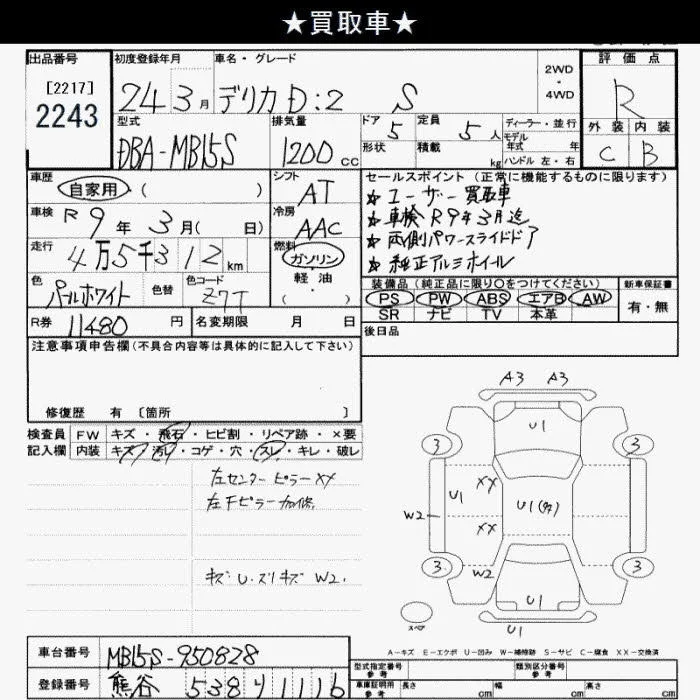 ★買取車★
出品番号
[2217]
2243
初度登録年月
24 3月
車名・グレード
デリカD:2 S
2WD
・
4WD
評価点
R
外装 内装
C B
型式
DBA-MB15S
排気量
1200 cc
ドア 5
形状
定員 5人
積載 kg
ディーラー・並行
モデル
年式 年
ハンドル 左・右
車歴
自家用 ( )
シフト
AT
セールスポイント(正常に機能するものに限ります)
★ユーザー買取車
★車検R9年3月迄
★両側パワースライドドア
★純正アルミホイル
車検 R9年 3月( 日)
冷房
AAC
走行
4万5千312km
燃料
ガソリン
軽油
・( )
色
パールホワイト
色替
色コード
Z7T
装備品(純正品に限り○をつけてください)
PS PW ABS エアB AW
SR ナビ TV 本革
新車保証書
有・無
R券 11480 円
名変期限 月 日
後日品
注意事項申告欄(不具合内容等は具体的に記入して下さい)
修復歴 有 〔箇所 〕
検査員
記入欄
FW キズ・飛石・ヒビ割・リペア跡・×要
内装 キズ・汚れ・コゲ・穴・スレ・キレ・破レ
左センターピラーXX
左Fピラー加修
キズ U.ズリキズ W2.
A3 A3
U1
3 3
XX
U1
U1(タタ)
W2
XX
3 3
W2
U1
スペア
U1
A-キズ E-エクボ U-凹み W-補修跡 S-サビ C-腐食 XX-交換済
車台番号
MB15S-950828
登録番号
熊谷 538 り 1116
型式指定番号
参考
類別区分番号
参考
車庫証明用
参考
長さ cm 幅 cm 高さ cm